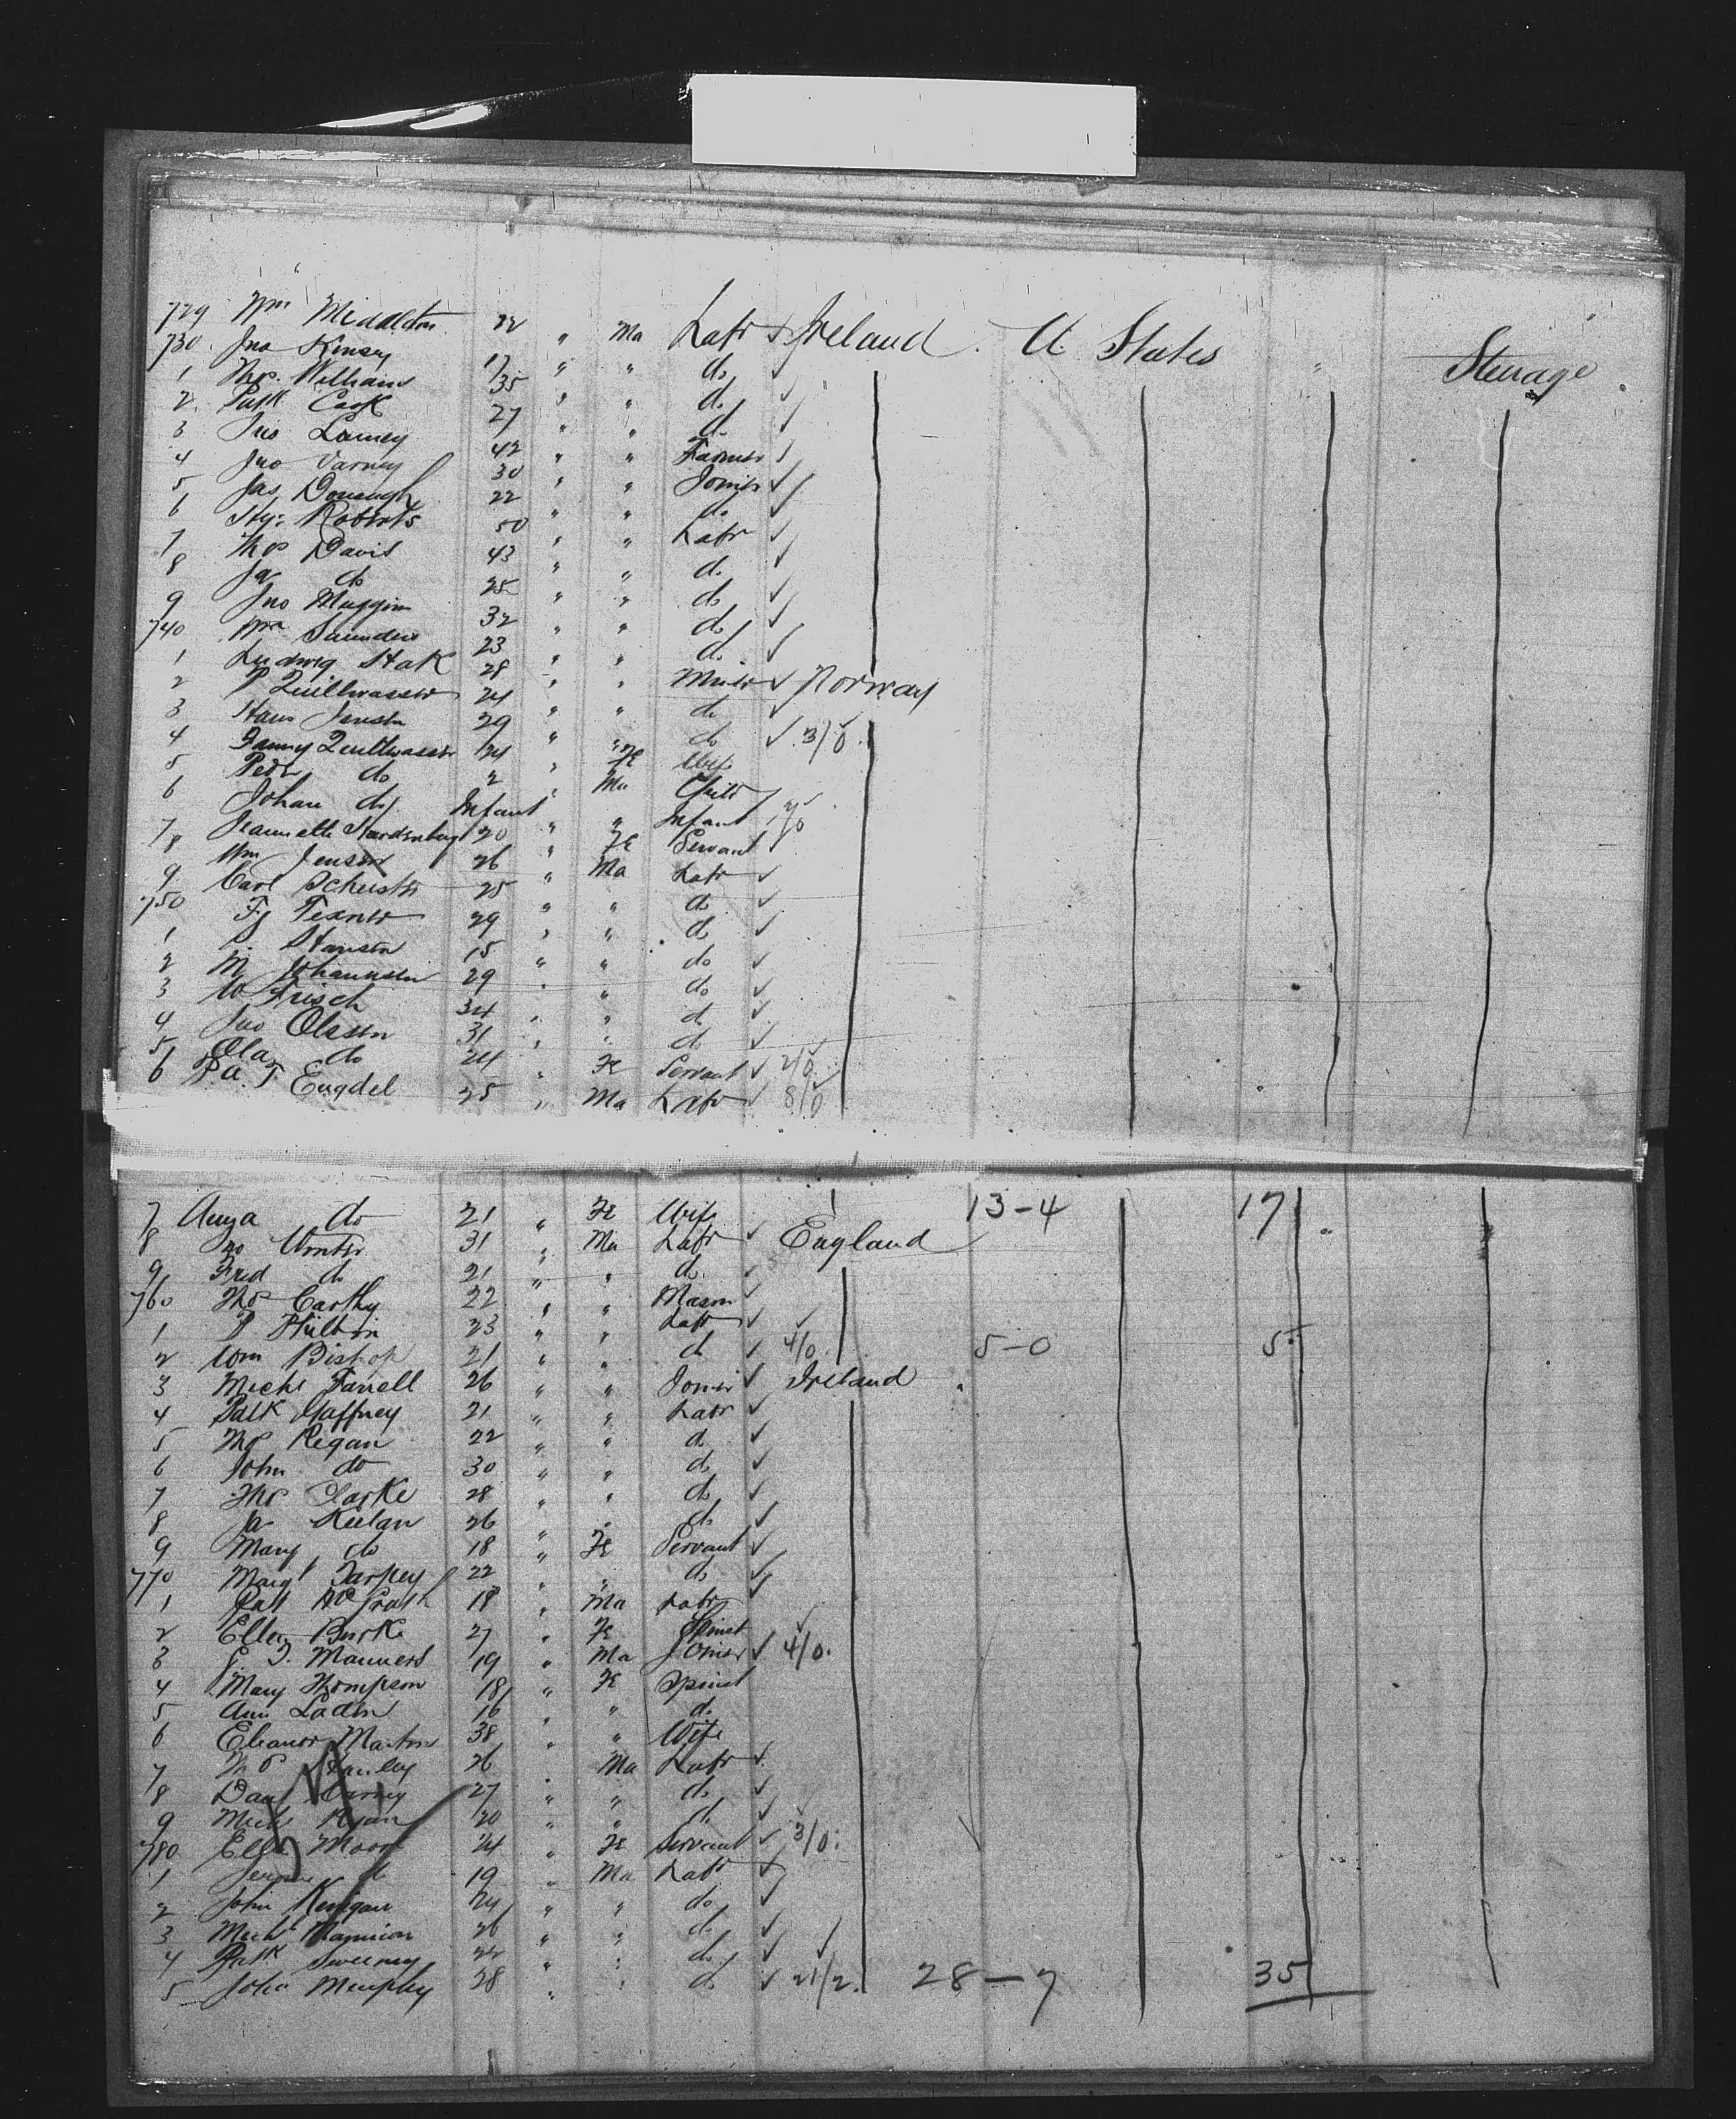 729 Wm Middleton 22 " Ma Labr Ireland U States " Steerage
730 Jno Kinsey 17 " " do
1 Thos Williams 35 " " do
2 Patk Cook 27 " " do
3 Jno Lamey 42 " " Farmer
4 Jno Varney 30 " " Joiner
5 Jas Donough 22 " " do
6 Hy Roberts 50 " " Labr
7 Thos Davis 43 " " do
8 Ja do 25 " " do
9 Jno Muggin 32 " " do
740 Wm Saunders 23 " " do
1 Ludwig Stak 28 " " Miner Norway
2 P Quillwasser 24 " " do
3 Hans Jensen 29 " " do 3/0
4 Fanny Quillwasser 24 " Fe Wife
5 Pedr do 2 " Ma Child
6 Johan do Infant " " Infant
7 Jeannette 20 " Fe Servant
8 Wm Jensen 26 " Ma Labr
9 Carl Schuster 25 " " do
750 Fj Texner 29 " " do
1 Hansen 15 " " do
2 M Johannsen 29 " " do
3 W Frisch 34 " " do
4 Jno Olesen 31 " " do
5 Ola do 24 " Fe Servant 2/0
6 P.a.T. Engdel 25 " Ma Labr 8/0
7 Anga do 21 " Fe Wife 13-4 17
8 Jno Winter 31 " Ma Labr England
9 Fred do 21 " " do
760 Thos Carthy 22 " " Mason
1 P Hilton 23 " " Labr
2 Wm Bishop 21 " " do 4/0 5-0 5
3 Michl Farrell 26 " " Joiner Ireland
4 Patk Gaffney 21 " " Labr
5 Thos Regan 22 " " do
6 John do 30 " " do
7 Thos Clarke 28 " " do
8 Ja Keelan 26 " " do
9 Mary do 18 " Fe Servant
770 Margt Tarpey 22 " " do
1 Patt McGrath 18 " Ma Labr
2 Ellen Burke 27 " Fe Spinst
3 E. J. Manners 19 " Ma Joiner 4/0
4 Mary Thompson 18 " Fe Spinst
5 Ann Laden 16 " " do
6 Eleanor Martin 38 " " Wife
7 Thos Hanley 26 " Ma Labr
8 Danl Carney 27 " " do
9 Michl Ryan 20 " " do
780 Ellen Moore 24 " Fe Servant 3/0
1 do 19 " Ma Labr
2 John Kerrigan 24 " " do
3 Michl Mannion 26 " " do
4 Patk Sweeney 22 " " do
5 John Murphy 28 " " do 21/2 28-7 35